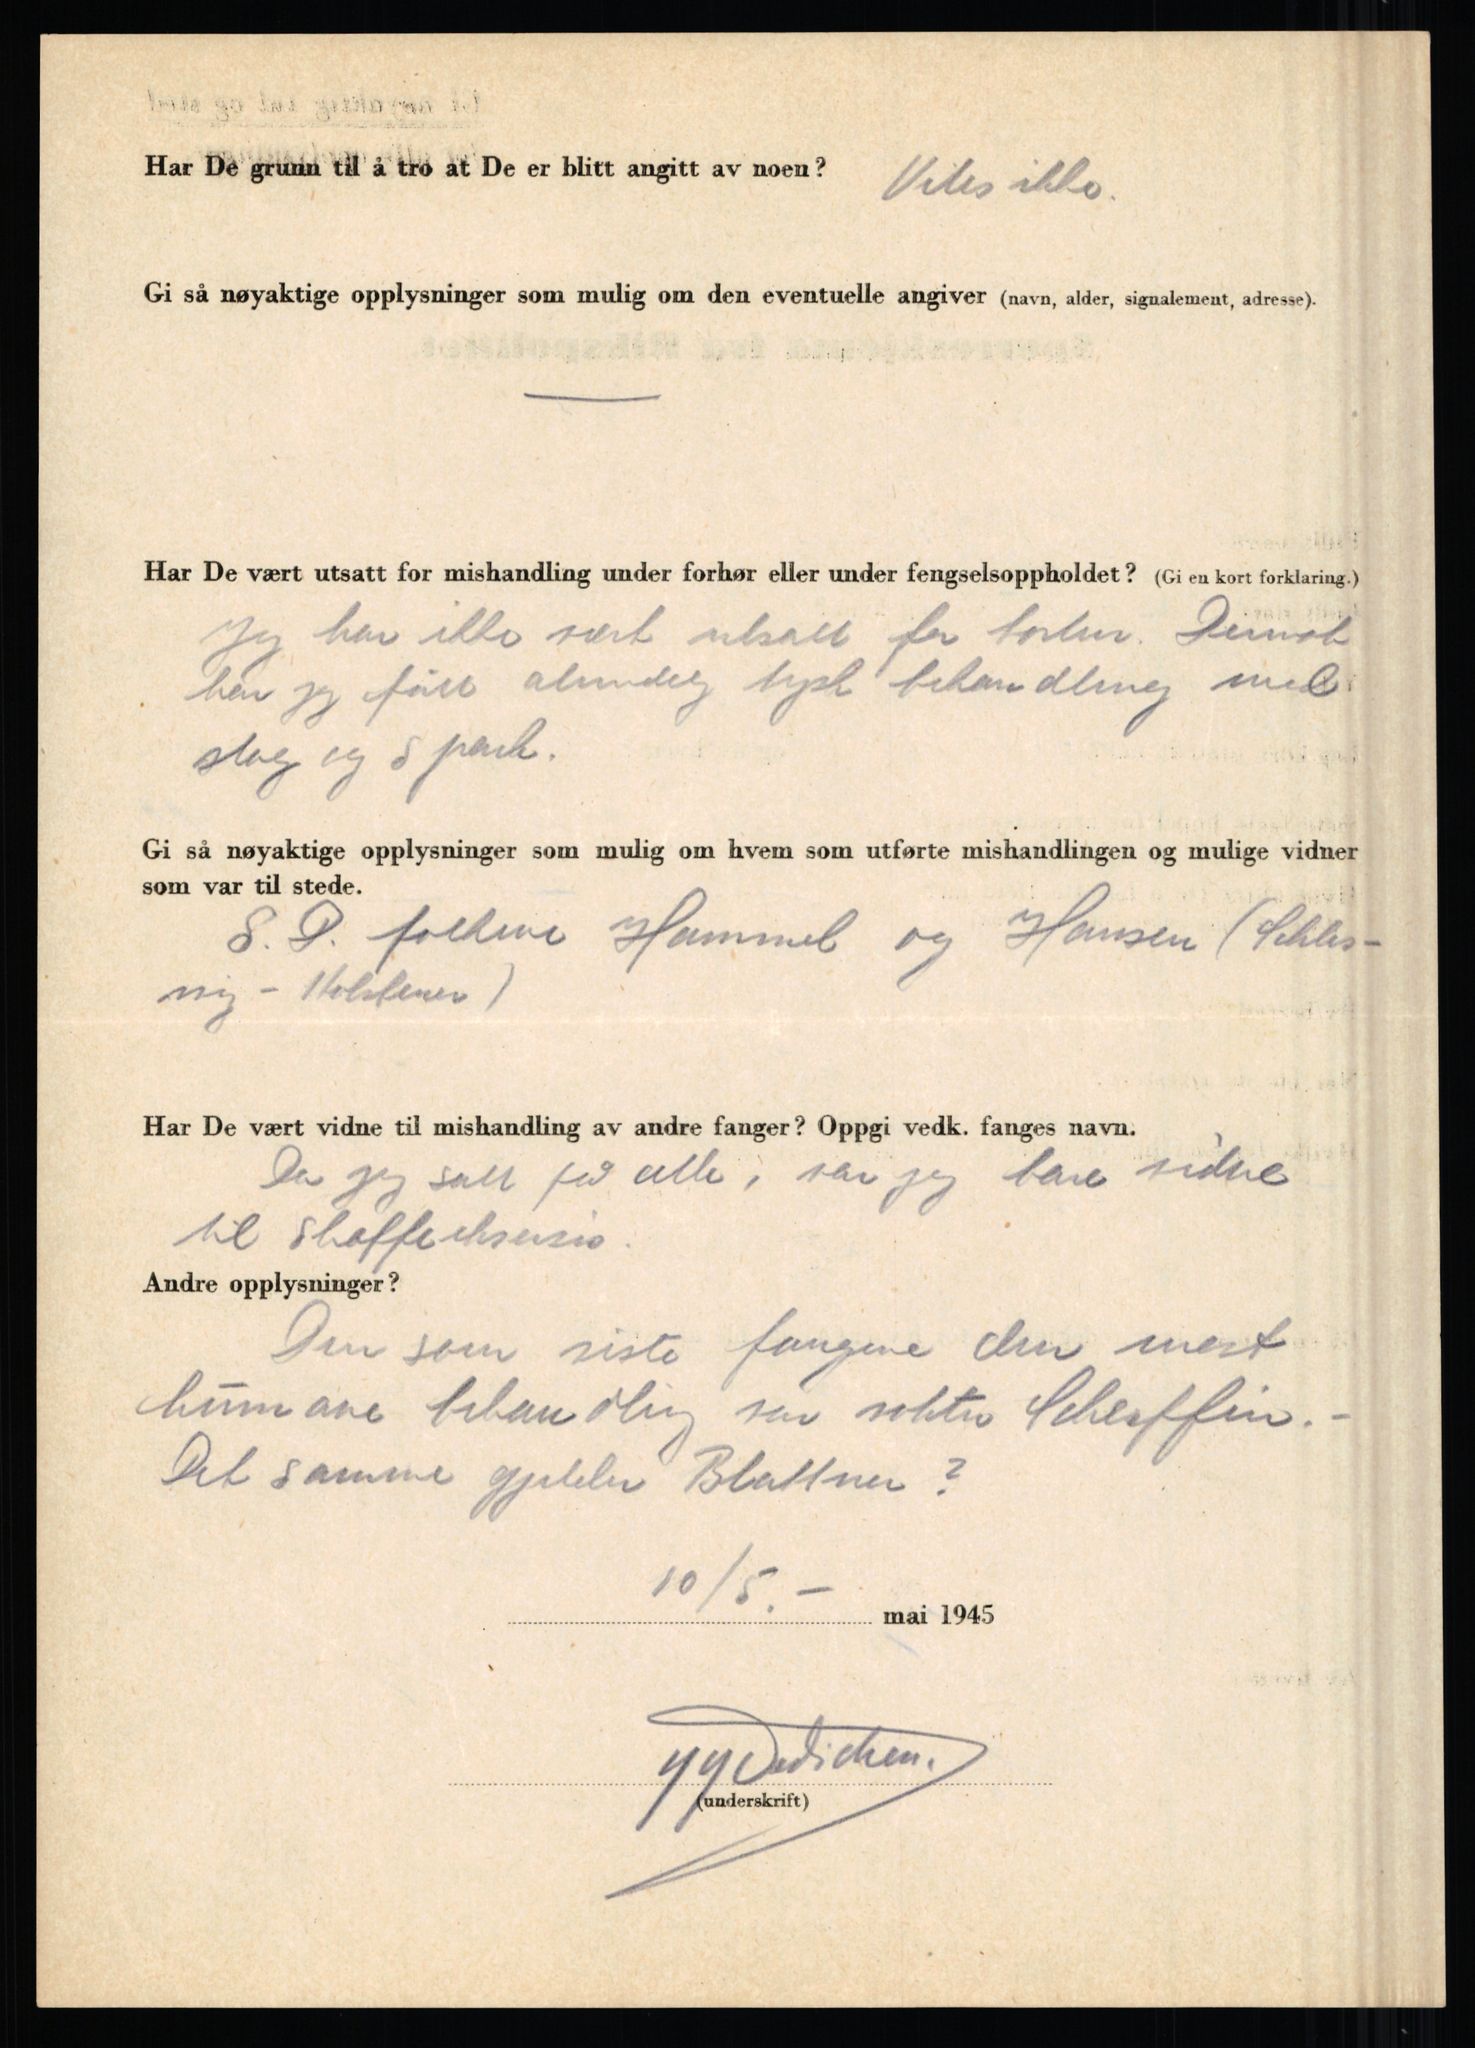 Har De grunn til å tro at De er blitt angitt av noen? Vites ikke.
Gi så nøyaktige opplysninger som mulig om den eventuelle angiver (navn, alder, signalement, adresse).
Har De vært utsatt for mishandling under forhør eller under fengselsoppholdet? (Gi en kort forklaring.)
Jeg har ikke vært utsatt for tortur. Derimot
har jeg fått almindelig tysk behandling med
slag og spark.
Gi så nøyaktige opplysninger som mulig om hvem som utførte mishandlingen og mulige vidner
som var til stede.
S. P. folkene Hammel og Hansen (Schles-
wig - Holstener)
Har De vært vidne til mishandling av andre fanger? Oppgi vedk. fanges navn.
Da jeg satt på celle, var jeg bare vidne
til straffeeksersis.
Andre opplysninger?
Den som viste fangene den mest
humane behandling var Scheffin. -
Det samme gjelder Blattner?
10/5. - mai 1945
Dedichen.
(underskrift)